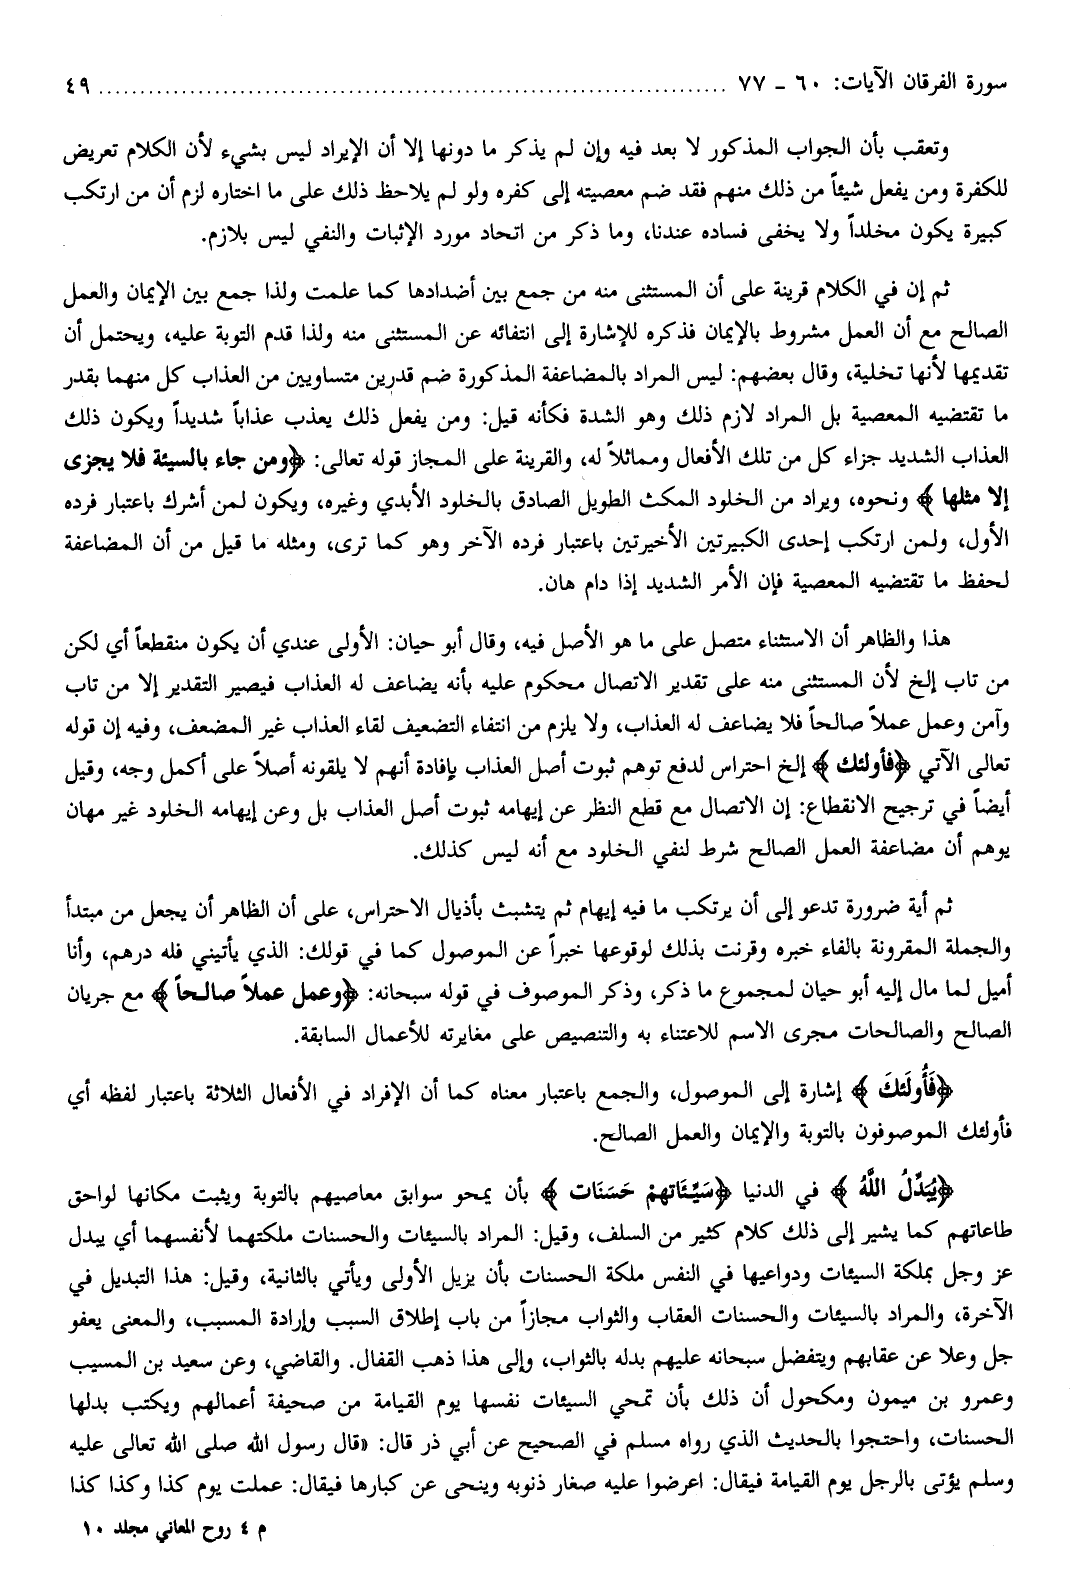 سورة الفرقان الآيات: ٦٠ ـ ٧٧ ........................................................................ ٤٩
وتعقب بأن الجواب المذكور لا بعد فيه وإن لم يذكر ما دونها إلا أن الإيراد ليس بشيء لأن الكلام تعريض
للكفرة ومن يفعل شيئاً من ذلك منهم فقد ضم معصيته إلى كفره ولو لم يلاحظ ذلك على ما اختاره لزم أن من ارتكب
كبيرة يكون مخلداً ولا يخفى فساده عندنا، وما ذكر من اتحاد مورد الإثبات والنفي ليس بلازم.
ثم إن في الكلام قرينة على أن المستثنى منه من جمع بين أضدادها كما علمت ولذا جمع بين الإيمان والعمل
الصالح مع أن العمل مشروط بالإيمان فذكره للإشارة إلى انتفائه عن المستثنى منه ولذا قدم التوبة عليه، ويحتمل أن
تقديمها لأنها تخلية، وقال بعضهم: ليس المراد بالمضاعفة المذكورة ضم قدرين متساويين من العذاب كل منهما بقدر
ما تقتضيه المعصية بل المراد لازم ذلك وهو الشدة فكأنه قيل: ومن يفعل ذلك يعذب عذاباً شديداً ويكون ذلك
العذاب الشديد جزاء كل من تلك الأفعال ومماثلاً له، والقرينة على المجاز قوله تعالى: ﴿ومن جاء بالسيئة فلا يجزى
إلا مثلها﴾ ونحوه، ويراد من الخلود المكث الطويل الصادق بالخلود الأبدي وغيره، ويكون لمن أشرك باعتبار فرده
الأول، ولمن ارتكب إحدى الكبيرتين الأخيرتين باعتبار فرده الآخر وهو كما ترى، ومثله ما قيل من أن المضاعفة
لحفظ ما تقتضيه المعصية فإن الأمر الشديد إذا دام هان.
هذا والظاهر أن الاستثناء متصل على ما هو الأصل فيه، وقال أبو حيان: الأولى عندي أن يكون منقطعاً أي لكن
من تاب إلخ لأن المستثنى منه على تقدير الاتصال محكوم عليه بأنه يضاعف له العذاب فيصير التقدير إلا من تاب
وآمن وعمل عملاً صالحاً فلا يضاعف له العذاب، ولا يلزم من انتفاء التضعيف لقاء العذاب غير المضعف، وفيه إن قوله
تعالى الآتي ﴿فأولئك﴾ إلخ احتراس لدفع توهم ثبوت أصل العذاب بإفادة أنهم لا يلقونه أصلاً على أكمل وجه، وقيل
أيضاً في ترجيح الانقطاع: إن الاتصال مع قطع النظر عن إيهامه ثبوت أصل العذاب بل وعن إيهامه الخلود غير مهان
يوهم أن مضاعفة العمل الصالح شرط لنفي الخلود مع أنه ليس كذلك.
ثم أية ضرورة تدعو إلى أن يرتكب ما فيه إيهام ثم يتشبث بأذيال الاحتراس، على أن الظاهر أن يجعل من مبتدأ
والجملة المقرونة بالفاء خبره وقرنت بذلك لوقوعها خبراً عن الموصول كما في قولك: الذي يأتيني فله درهم، وأنا
أميل لما مال إليه أبو حيان لمجموع ما ذكر، وذكر الموصوف في قوله سبحانه: ﴿وعمل عملاً صالحاً﴾ مع جريان
الصالح والصالحات مجرى الاسم للاعتناء به والتنصيص على مغايرته للأعمال السابقة.
﴿فَأُولَئكَ﴾ إشارة إلى الموصول، والجمع باعتبار معناه كما أن الإفراد في الأفعال الثلاثة باعتبار لفظه أي
فأولئك الموصوفون بالتوبة والإيمان والعمل الصالح.
﴿يُبَدِّلُ اللَّهُ﴾ في الدنيا ﴿سَيِّئَاتهمْ حَسَنَات﴾ بأن يمحو سوابق معاصيهم بالتوبة ويثبت مكانها لواحق
طاعاتهم كما يشير إلى ذلك كلام كثير من السلف، وقيل: المراد بالسيئات والحسنات ملكتهما لأنفسهما أي يبدل
عز وجل بملكة السيئات ودواعيها في النفس ملكة الحسنات بأن يزيل الأولى ويأتي بالثانية، وقيل: هذا التبديل في
الآخرة، والمراد بالسيئات والحسنات العقاب والثواب مجازاً من باب إطلاق السبب وإرادة المسبب، والمعنى يعفو
جل وعلا عن عقابهم ويتفضل سبحانه عليهم بدله بالثواب، وإلى هذا ذهب القفال. والقاضي، وعن سعيد بن المسيب
وعمرو بن ميمون ومكحول أن ذلك بأن تمحي السيئات نفسها يوم القيامة من صحيفة أعمالهم ويكتب بدلها
الحسنات، واحتجوا بالحديث الذي رواه مسلم في الصحيح عن أبي ذر قال: «قال رسول الله صلى الله تعالى عليه
وسلم يؤتى بالرجل يوم القيامة فيقال: اعرضوا عليه صغار ذنوبه وينحى عن كبارها فيقال: عملت يوم كذا وكذا كذا
م ٤ روح المعاني مجلد ١٠